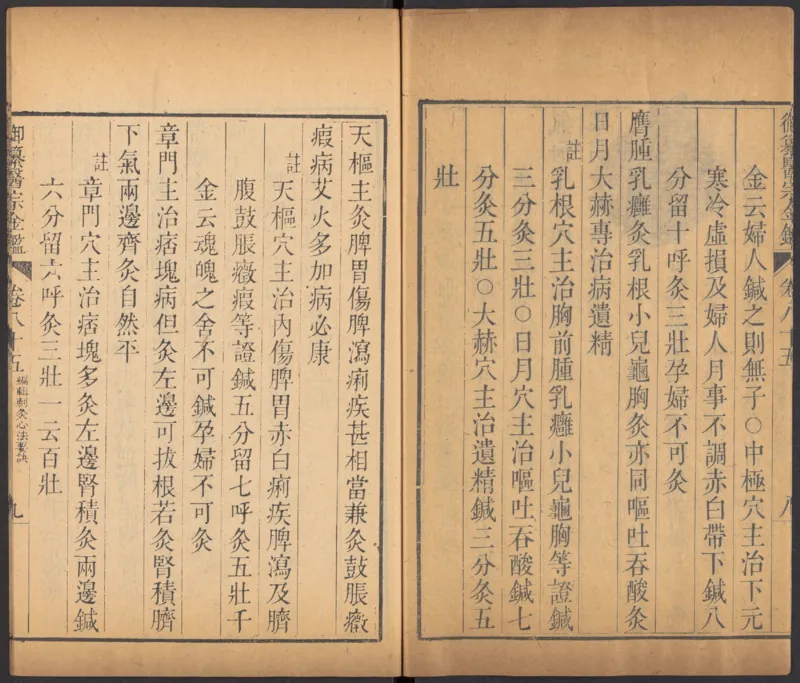 御纂醫宗金鑑 卷八十五 八
金云婦人鍼之則無子○中極穴主治下元
寒冷虛損及婦人月事不調赤白帶下鍼八
分留十呼灸三壯孕婦不可灸
膺腫乳癰灸乳根小兒龜胸灸亦同嘔吐吞酸灸
日月大赫專治病遺精
註乳根穴主治胸前腫乳癰小兒龜胸等證鍼
三分灸三壯○日月穴主治嘔吐吞酸鍼七
分灸五壯○大赫穴主治遺精鍼三分灸五
壯
天樞主灸脾胃傷脾瀉痢疾甚相當兼灸鼓脹癥
瘕病艾火多加病必康
註天樞穴主治內傷脾胃赤白痢疾脾瀉及臍
腹鼓脹癥瘕等證鍼五分留七呼灸五壯千
金云魂魄之舍不可鍼孕婦不可灸
章門主治痞塊病但灸左邊可拔根若灸腎積臍
下氣兩邊齊灸自然平
註章門穴主治痞塊多灸左邊腎積灸兩邊鍼
六分留六呼灸三壯一云百壯
御纂醫宗金鑑 卷八十五 編輯刺灸心法要訣 九